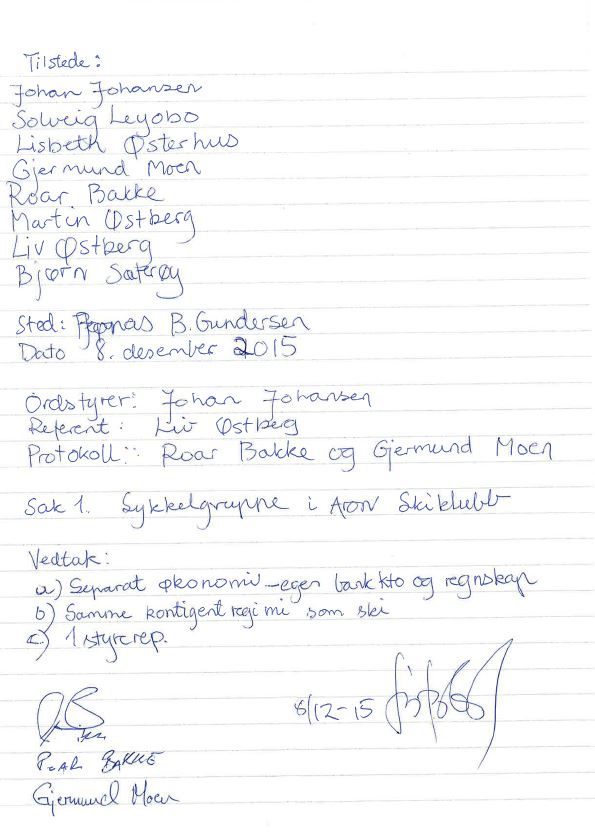 Tilstede:
Johan Johansen
Solveig Leyobo
Lisbeth Østerhus
Gjermund Moen
Roar Bakke
Martin Østberg
Liv Østberg
Bjørn Sæterøy
Sted: B. Gundersen
Dato 8. desember 2015
Ordstyrer: Johan Johansen
Referent: Liv Østberg
Protokoll: Roar Bakke og Gjermund Moen
Sak 1. Sykkelgruppe i Aron Skiklubb
Vedtak:
a) Separat økonomi – egen bankkto og regnskap
b) Samme kontigentregimi som ski
c) 1 styrerep.
8/12-15
ROAR BAKKE
Gjermund Moen